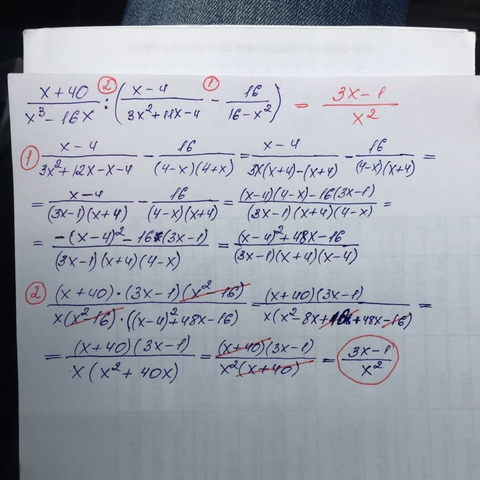 (x+40)/(x³-16x) :② ((x-4)/(3x²+11x-4) -① 16/(16-x²)) = (3x-1)/x²
① (x-4)/(3x²+12x-x-4) - 16/((4-x)(4+x)) = (x-4)/(3x(x+4)-(x+4)) - 16/((4-x)(x+4)) =
= (x-4)/((3x-1)(x+4)) - 16/((4-x)(x+4)) = ((x-4)(4-x)-16(3x-1))/((3x-1)(x+4)(4-x)) =
= (-(x-4)²-16(3x-1))/((3x-1)(x+4)(4-x)) = ((x-4)²+48x-16)/((3x-1)(x+4)(x-4))
② ((x+40)·(3x-1)(x²-16))/(x(x²-16)·((x-4)²+48x-16)) = ((x+40)(3x-1))/(x(x²-8x+16+48x-16)) =
= ((x+40)(3x-1))/(x(x²+40x)) = ((x+40)(3x-1))/(x²(x+40)) = (3x-1)/x²